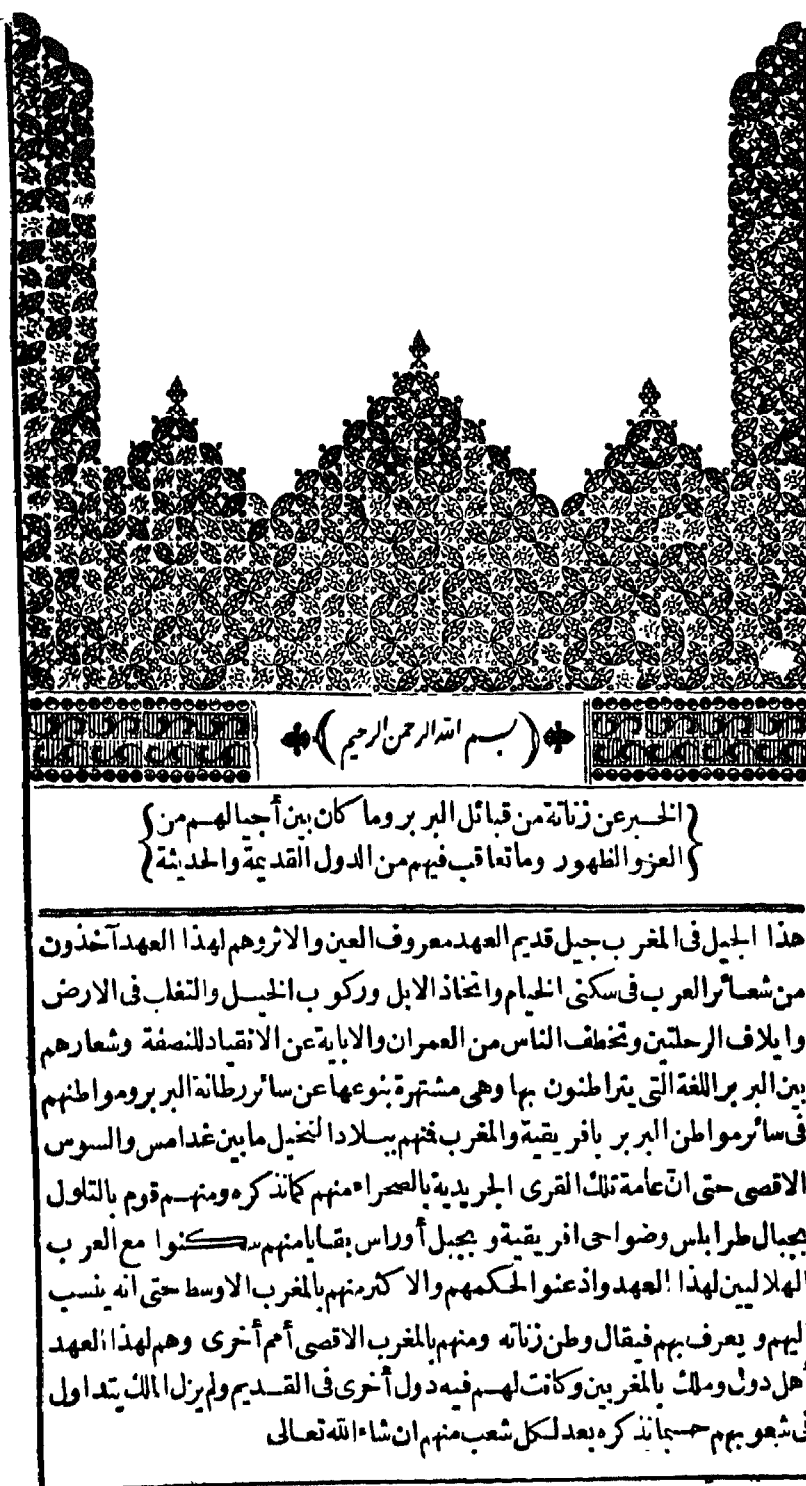 (بسم الله الرحمن الرحيم)
{الخبر عن زناتة من قبائل البربر وما كان بين أجيالهم من}
{العز والظهور وما تعاقب فيهم من الدول القديمة والحديثة}
هذا الجيل فى المغرب جيل قديم العهد معروف العين والاثر وهم لهذا العهد آخذون
من شعائر العرب فى سكنى الخيام واتخاذ الابل وركوب الخيل والتغلب فى الارض
وايلاف الرحلتين وتخطف الناس من العمران والاباية عن الانقياد للنصفة وشعارهم
بين البربر اللغة التى يتراطنون بها وهى مشتهرة بنوعها عن سائر رطانة البربر ومواطنهم
فى سائر مواطن البربر بافريقية والمغرب فمنهم ببلاد النخيل ما بين غدامس والسوس
الاقصى حتى انّ عامة تلك القرى الجريدية بالصحراء منهم كما نذكره ومنهم قوم بالتلول
بجبال طرابلس وضواحى افريقية وبجبل أوراس بقايا منهم سكنوا مع العرب
الهلاليين لهذا العهد واذعنوا لحكمهم والاكثر منهم بالمغرب الاوسط حتى انه ينسب
اليهم ويعرف بهم فيقال وطن زناته ومنهم بالمغرب الاقصى أمم أخرى وهم لهذا العهد
أهل دول وملك بالمغربين وكانت لهم فيه دول أخرى فى القديم ولم يزل الملك يتداول
فى شعوبهم حسبما نذكره بعد لكل شعب منهم ان شاء الله تعالى